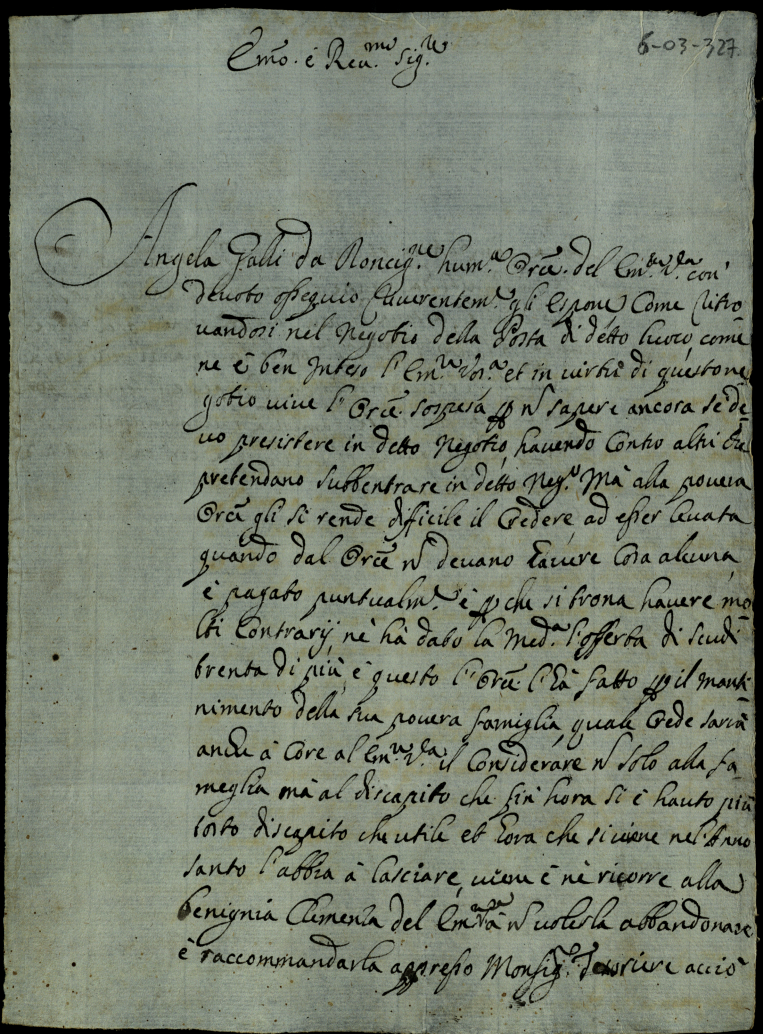 6-03-327
Emo. è Reu.mo Sig.re
Angela Galli da Roncig.ne hum.a Orce. del Em.za V.ra con
deuoto ossequio riuerentem.te gli espone come ritro
uandosi nel negotio della Posta di detto luoco, come
ne è ben inteso l'Em.za Vos.a et in uirtù di questo ne
gotio uiue l'Orce sospesa p nō sapere ancora se de
uo presistere in detto negotio, hauendo contro altri che
pretendano subbentrare in detto neg.o mà alla pouera
Orce gli si rende difficile il credere, ad esser leuata
quando dal Orce nō deuano hauere cosa alcuna,
è pagato puntualm.te è p che si troua hauere mo
lti contrarij nè hà dato la med.a l'offerta di scudi
trenta di più, è questo l'Orce l'hà fatto p il manti
nimento della sua pouera famiglia, quale crede sarà
anche à core al Em.za V.ra il considerare nō solo alla fa
meglia mà al discapito che fin'hora si è hauto più
tosto discapito che utile et hora che si uiene nel'Anno
santo l'abbia à lasciare, uiene è nè ricorre alla
benignia clementa del Em.za V.ra nō uolerla abbandonare
è raccommandarla appresso Monsig.re Tesoriere acciò